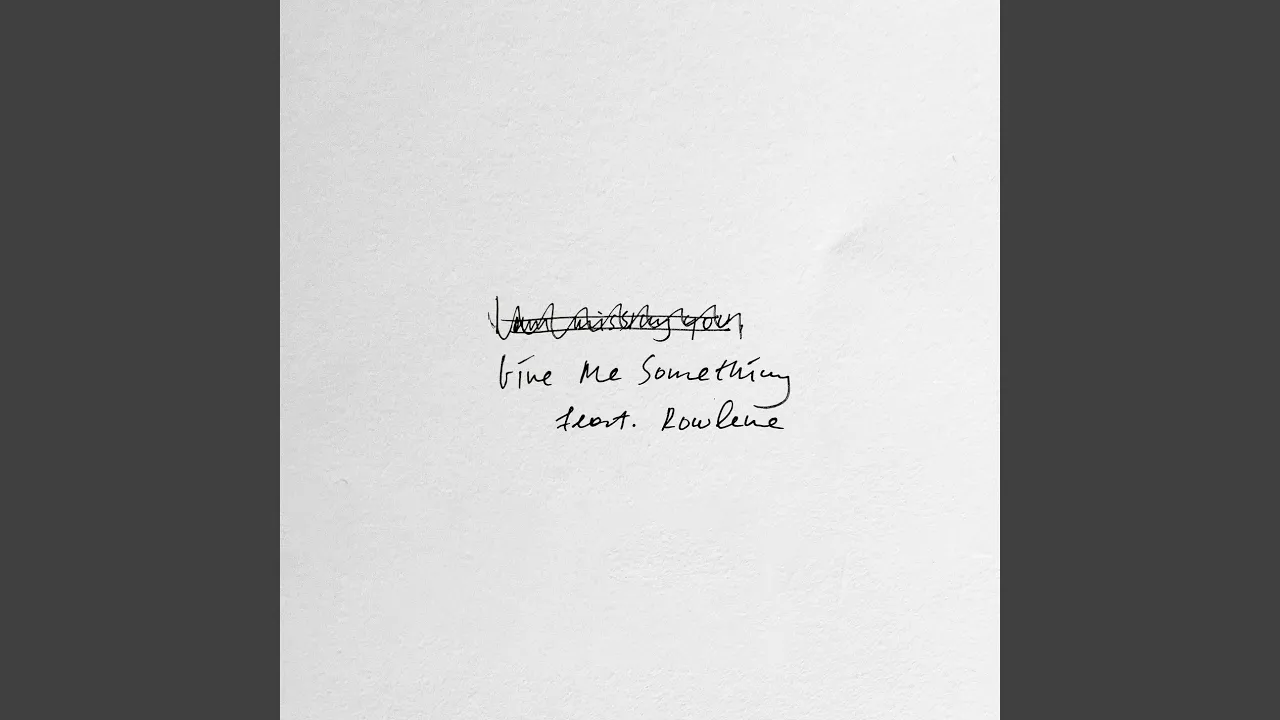 I am missing you,
Give Me Something
feat. Rowlene